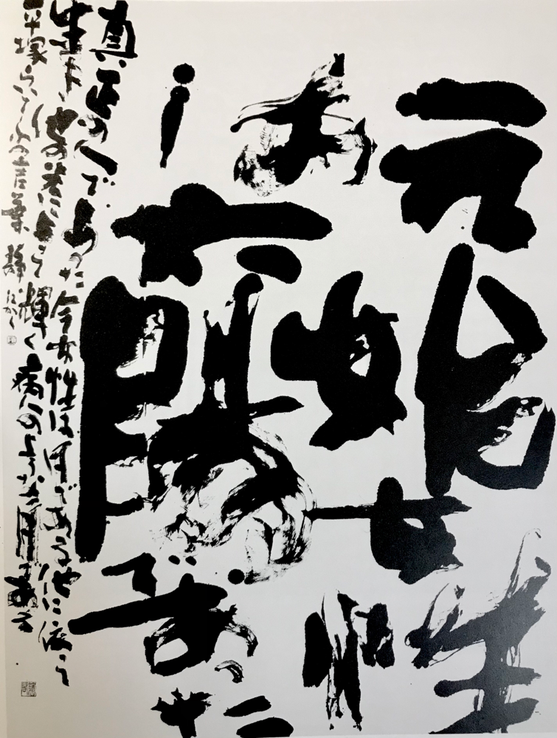 元始女性は
太陽であった
真正の人であった今女性は月である他に依って
生き他の光によって輝く病人のような月である
平塚らいてうの言葉 静 かく